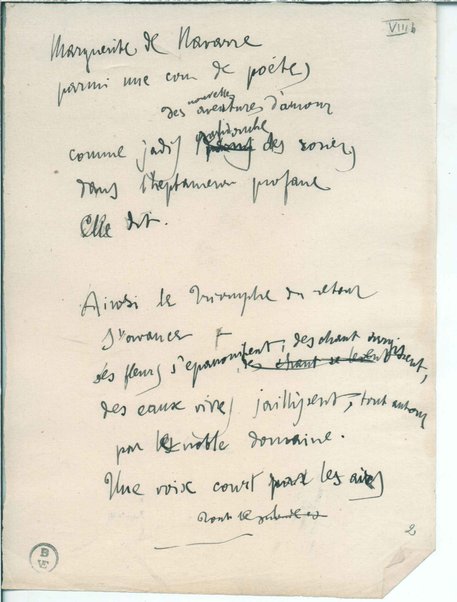 VIII b
Marguerite de Navarre
parmi une cour de poètes
nouvelles
des aventures d'amour
comme jadis des roses
dans l'heptameron profane
Elle dit.
Ainsi le triomphe du retour
s'avance +
des fleurs s'epanouissent, des chants
le chant se levent
des eaux vives jaillissent, tout autour
par le noble domaine.
Une voix court par les airs
2
B
VE